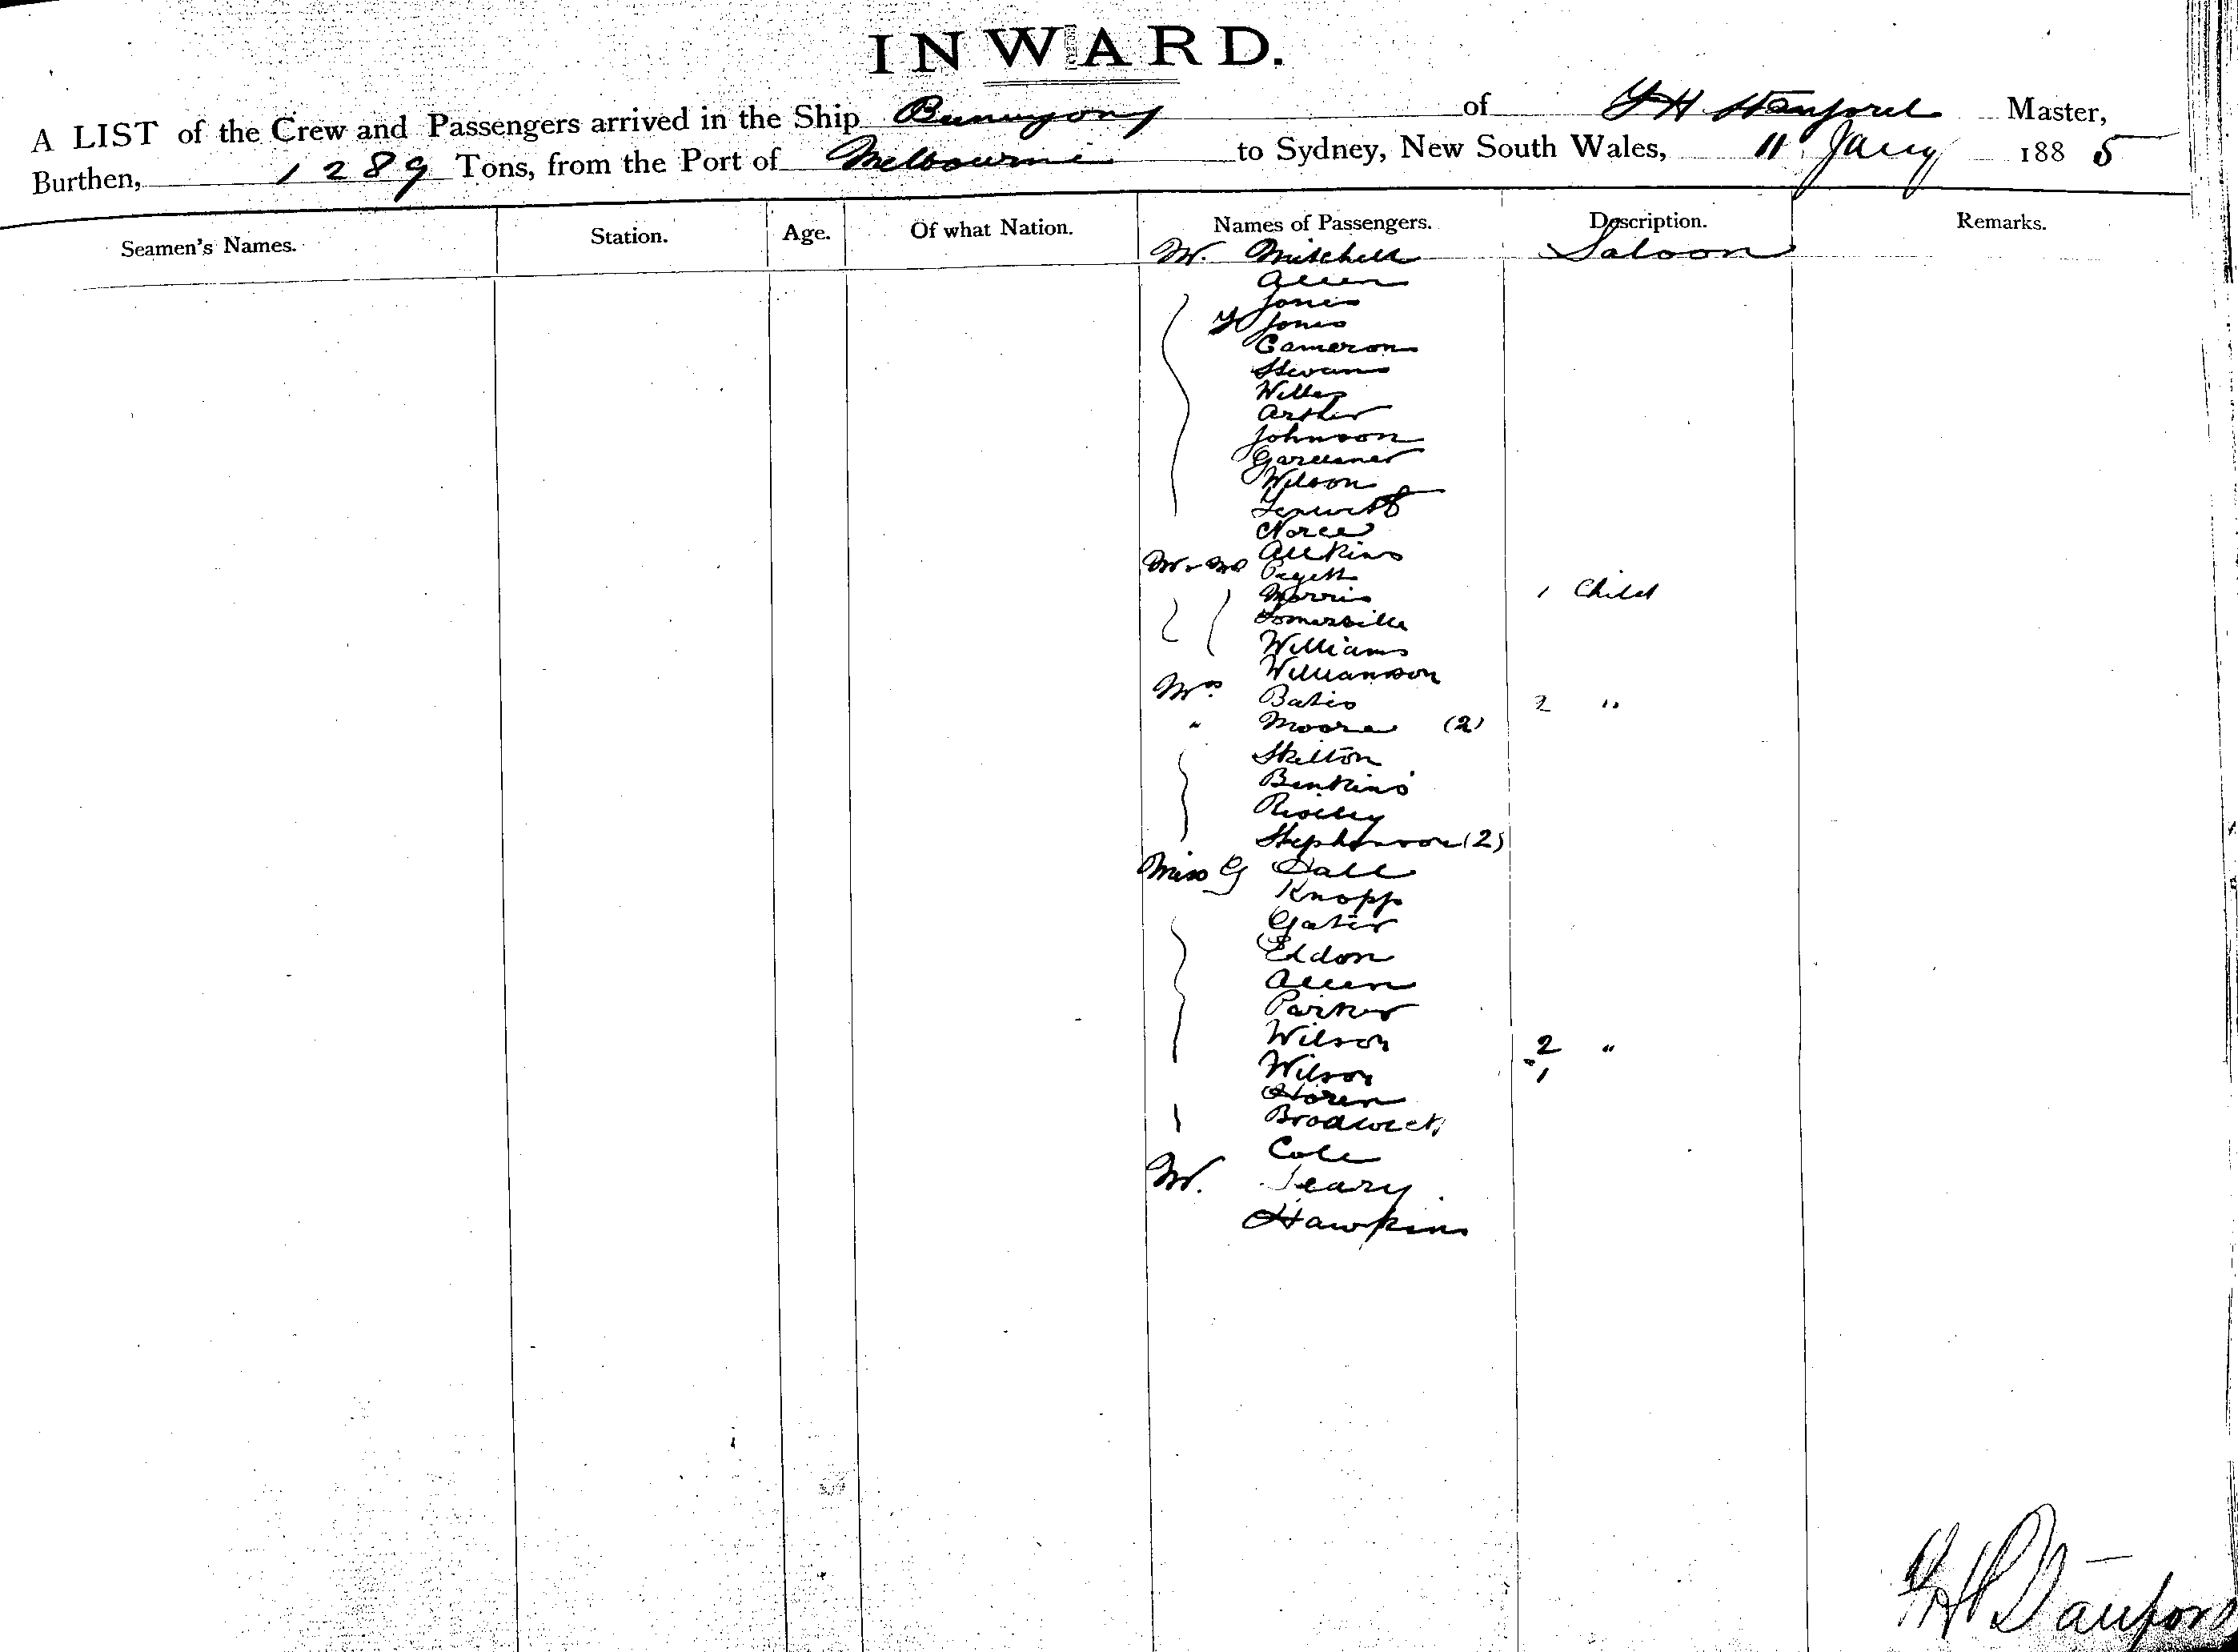 INWARD.
A LIST of the Crew and Passengers arrived in the Ship Buninyong of H Stanford Master,
Burthen, 1289 Tons, from the Port of Melbourne to Sydney, New South Wales, 11 Jany 1885
Seamen's Names. Station. Age. Of what Nation. Names of Passengers. Description. Remarks.
Mr. Mitchell Saloon
Allen
Jones
Jones
Cameron
Willes
Arther
Johnson
Gardiner
Wilson
Morris 1 Child
Somerville
Williams
Williamson
Mrs Bates 2 "
" Moore (2)
Skelton
Benkins
Stephenson (2)
Miss G Hall
Knopp
Gater
Eldon
Allen
Parker
Wilson 2 "
Wilson 1
Horen
Brodwick
Cole
Mr. Leary
Hawkins